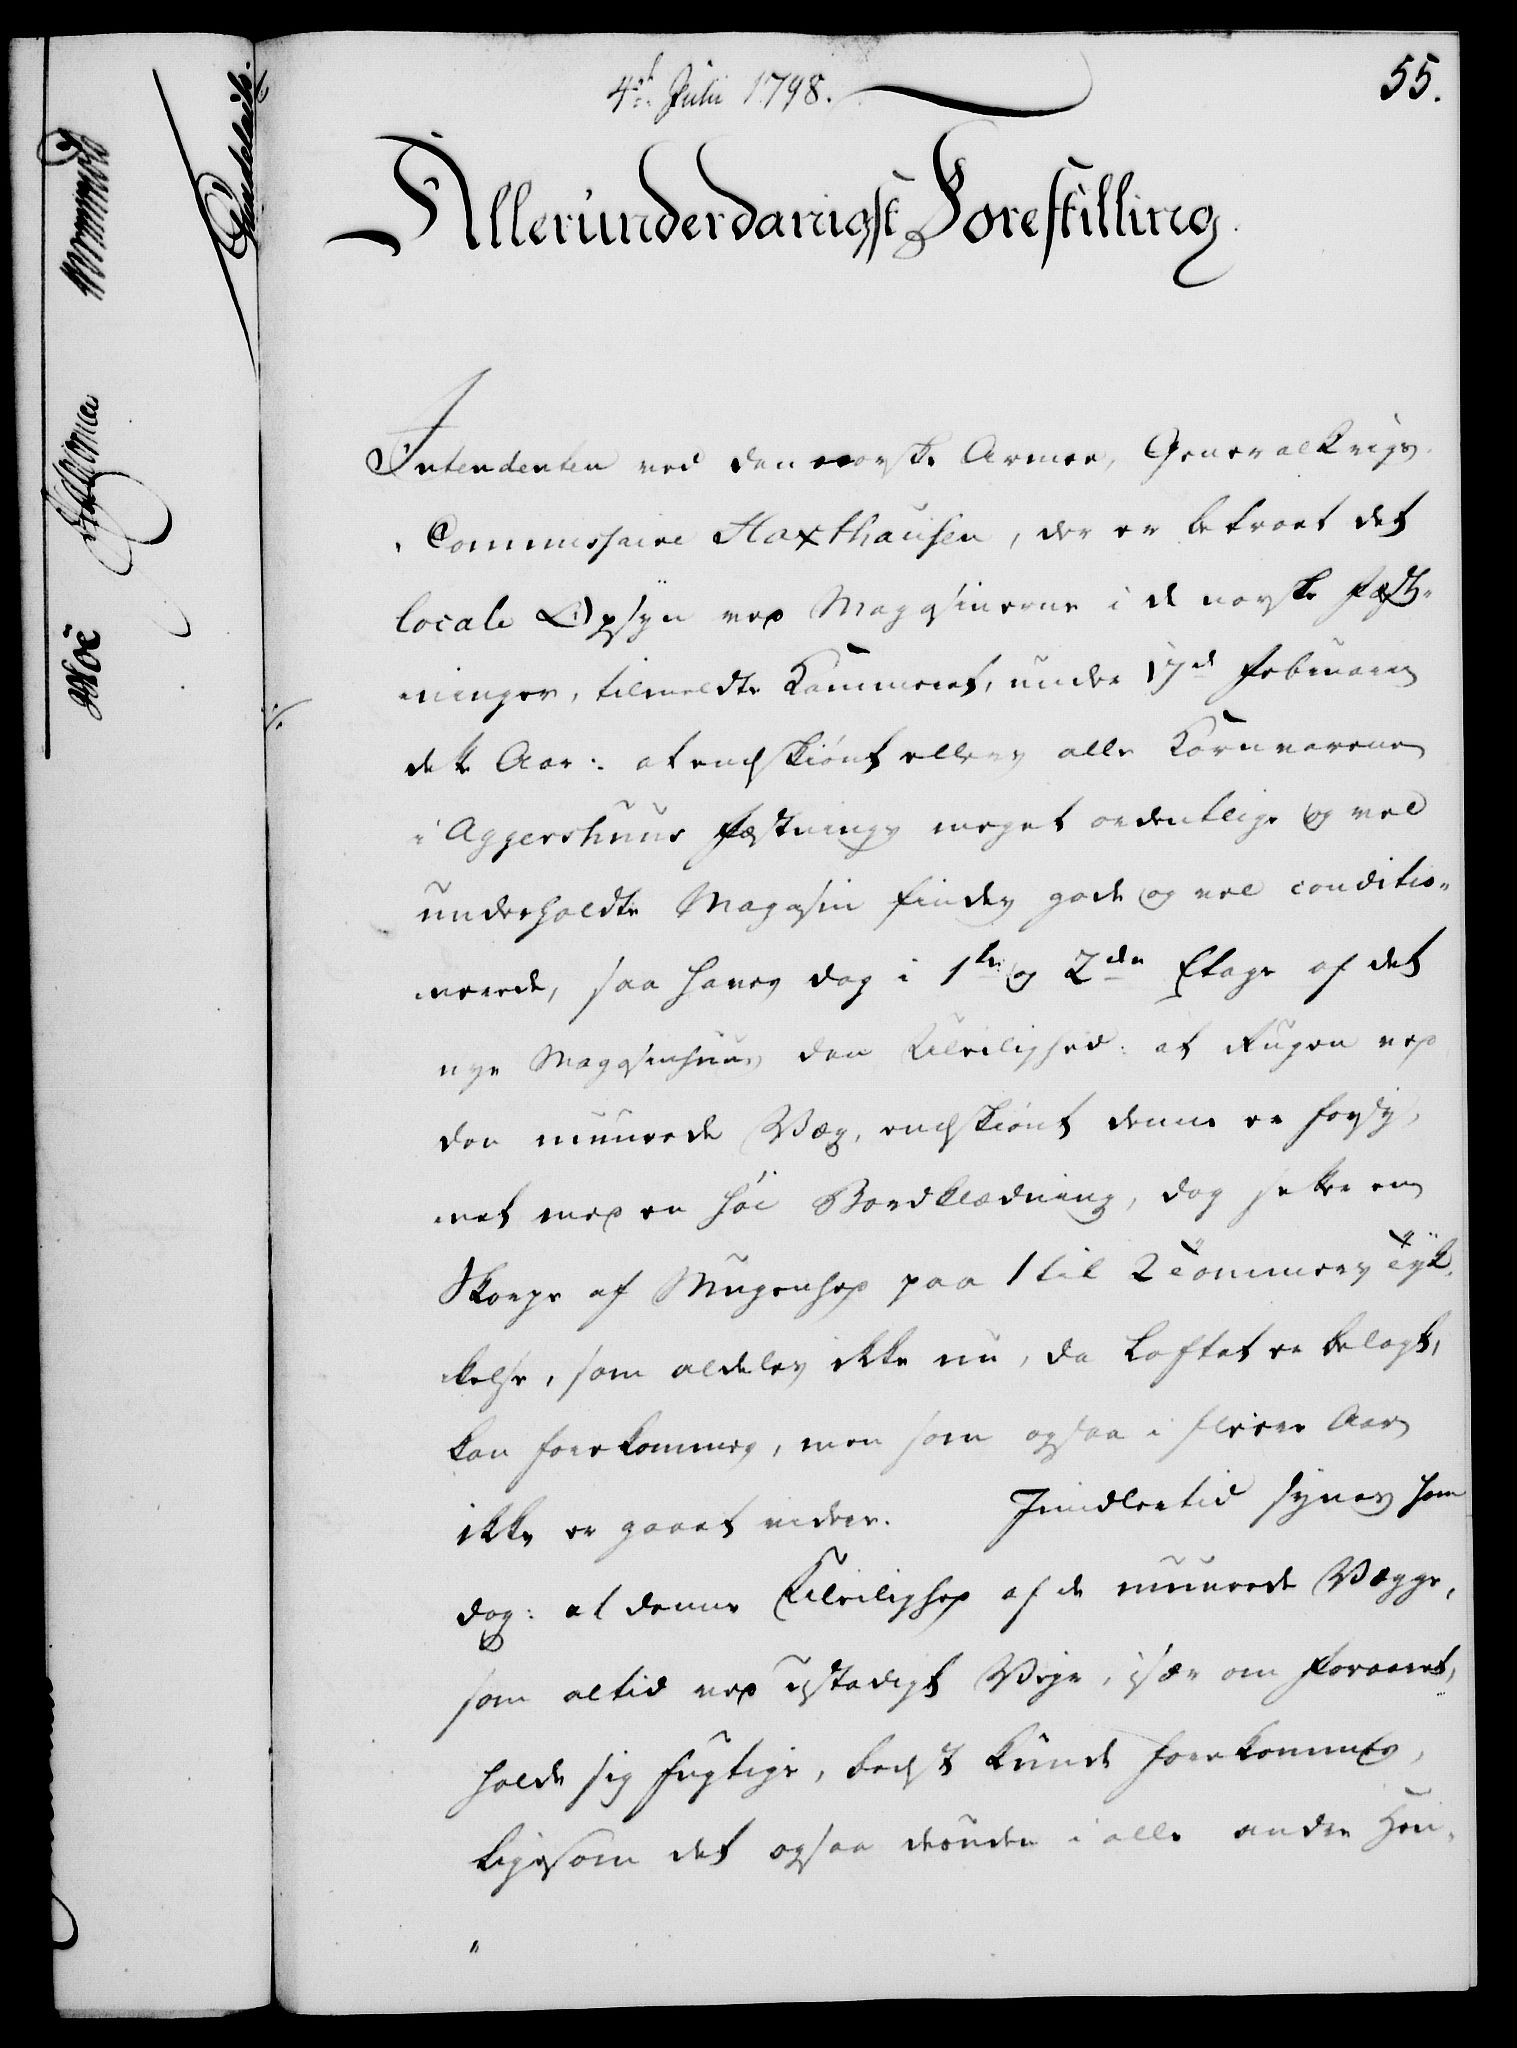 4de Julii 1798.
55.
Allerunderdanigst Forestilling.
Intendenten ved den norske Armee, GeneralKrigs-
Commissaire Haxthausen, der er betroet det
locale Opsyn ved Magasinerne i de norske Fæst-
ninger, tilmeldte Kammeret, under 17d Februarii
dette Aar: at endskiønt ellers alle Kornvarene
i Aggershuus Fæstnings meget ordentlige og vel
underholdte Magasin findes gode og vel conditio-
nerede, saa haves dog i 1ste og 2den Etage af det
nye Magasinhuus den Uleilighed: at Rugen ved
den muurede Væg, endskiønt denne er forsy-
net med en høi Bordklædning, dog sætter en
Skorpe af Mugenhed paa 1 til 2 Tommers Tyk-
kelse, som aldeles ikke nu, da Loftet er belagt,
kan forekommes, men som ogsaa i fleere Aar
ikke er gaaet videre. Imidlertid synes ham
dog: at denne Uleilighed af de muurede Vægge,
som altid ved ustadigt Vejr, især om Foraaret,
holde sig fugtige, bedst kunde forekommes,
ligesom det ogsaa desuden i alle andre Hen-
Moe